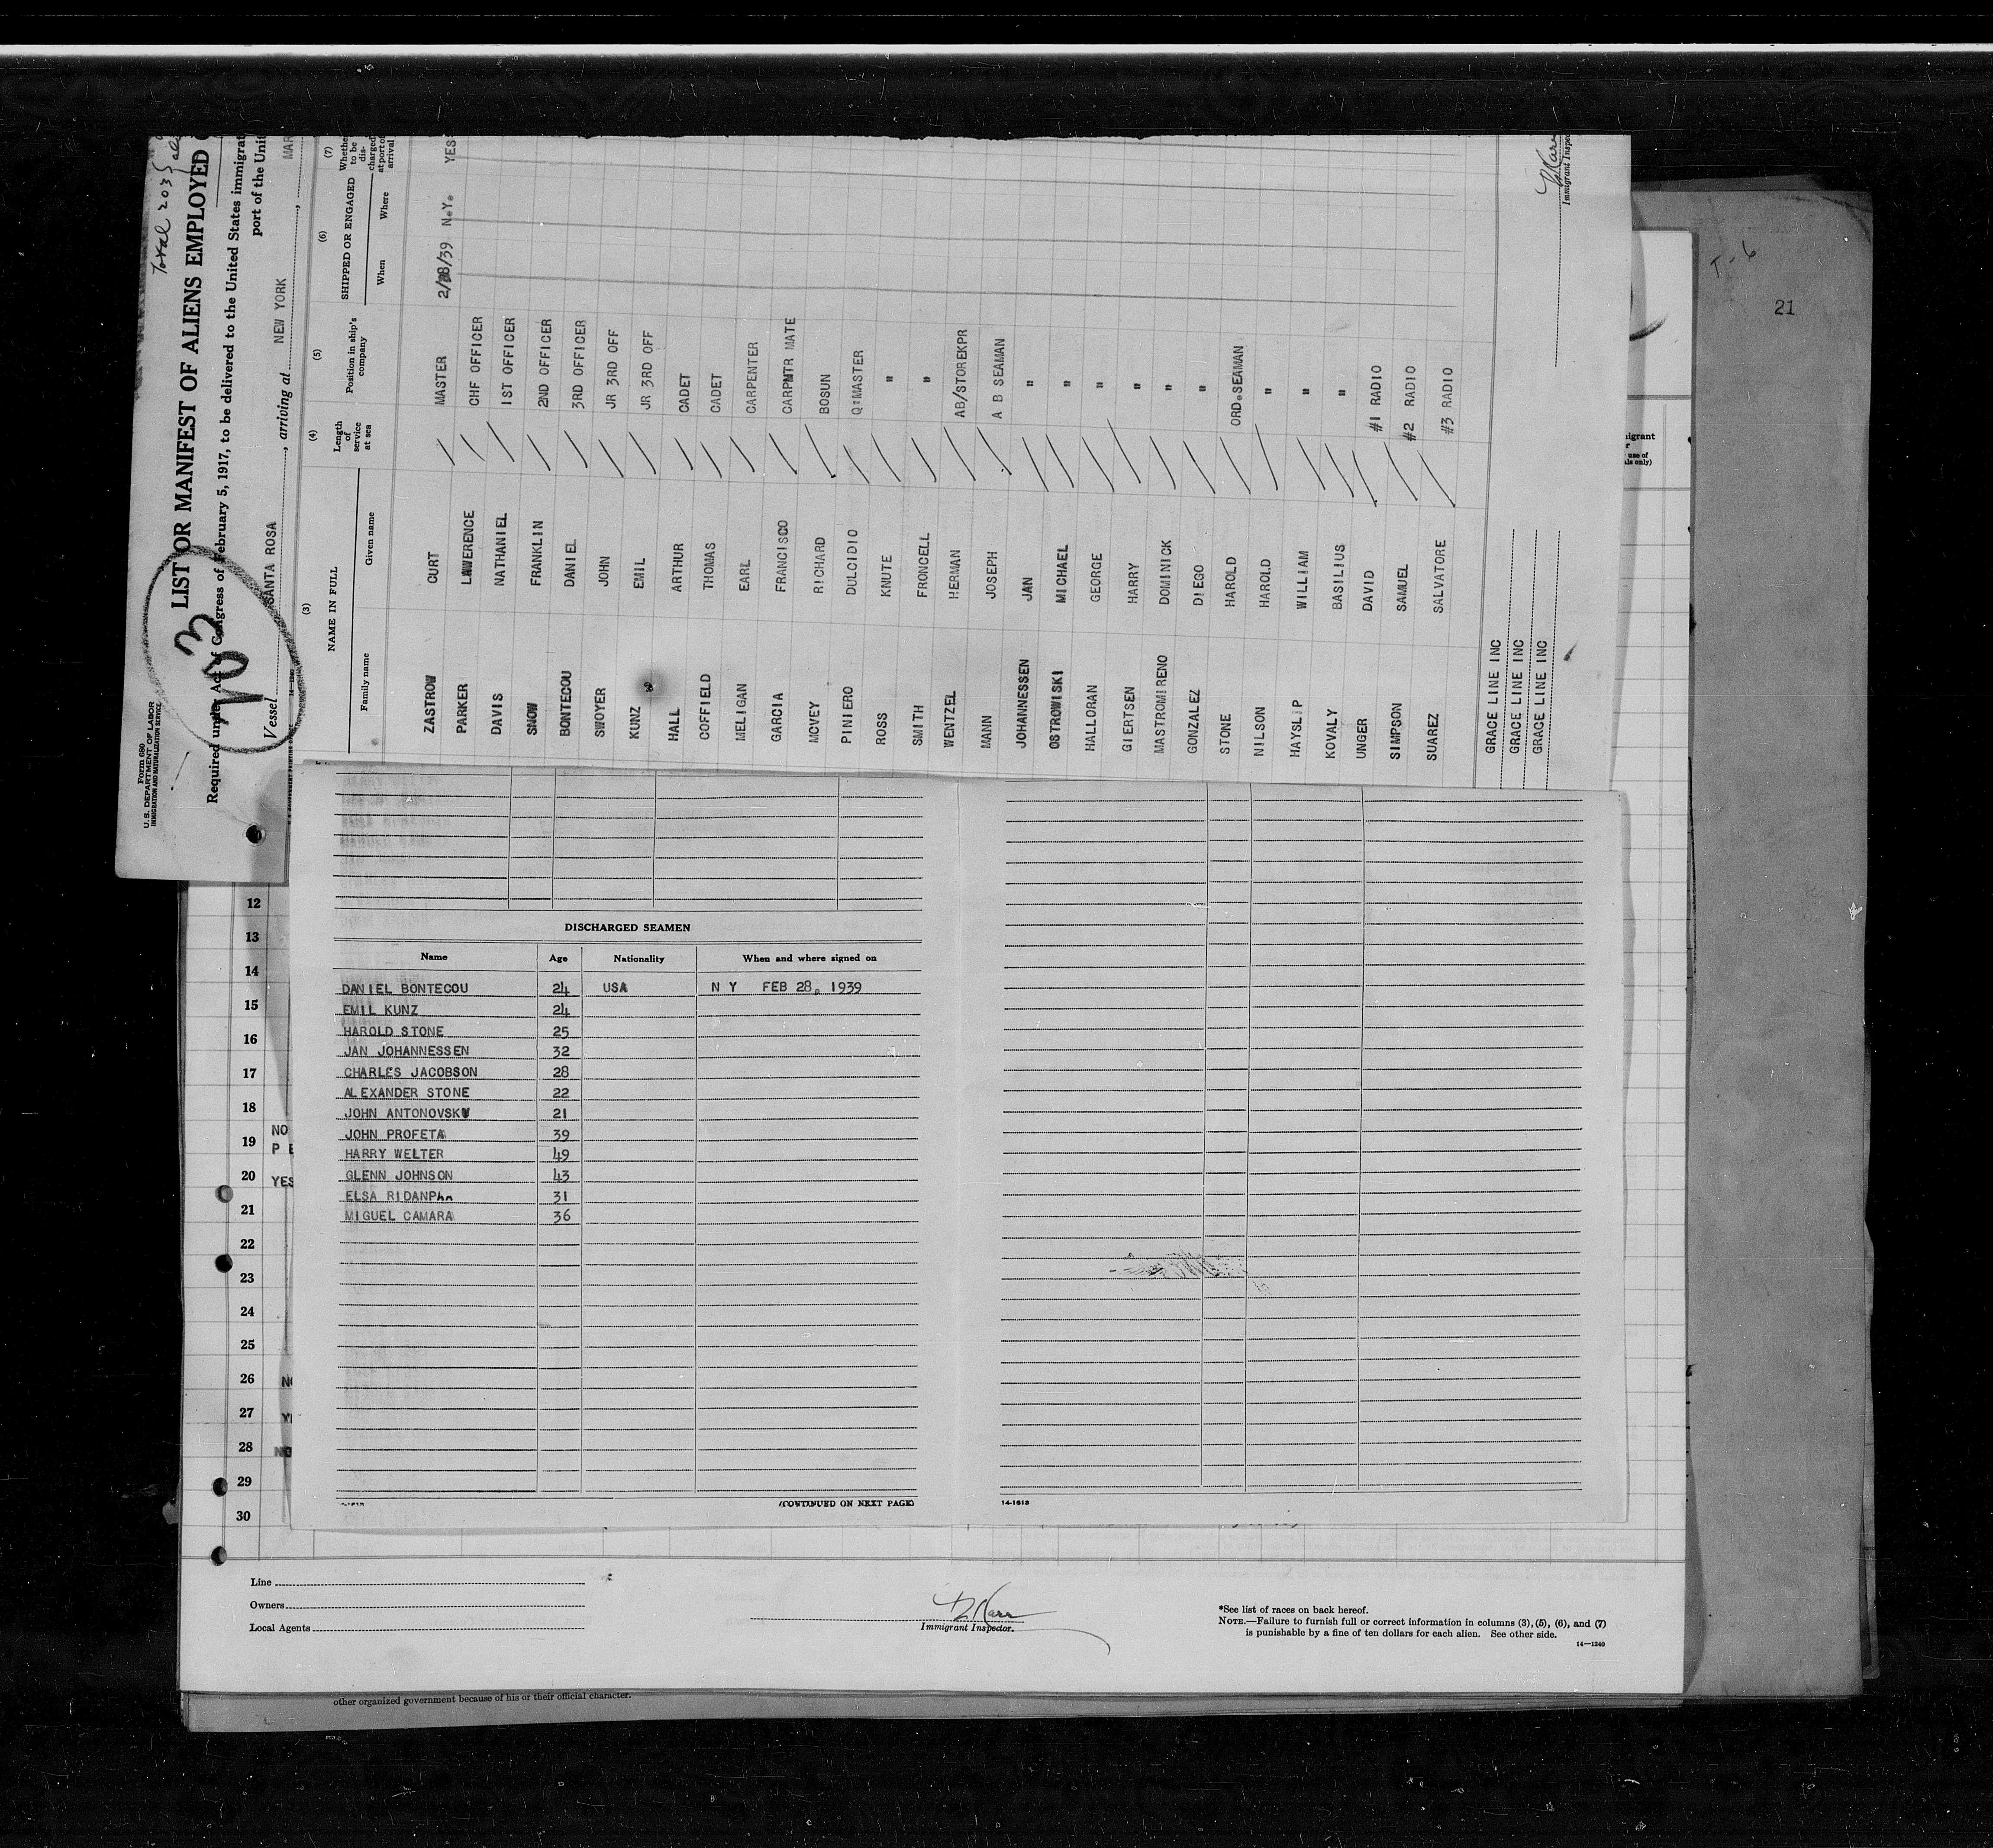 Total 203
Form 680
U. S. DEPARTMENT OF LABOR
IMMIGRATION AND NATURALIZATION SERVICE
203
LIST OR MANIFEST OF ALIENS EMPLOYED
Required under Act of Congress of February 5, 1917, to be delivered to the United States immigrat
port of the Unit
Vessel SANTA ROSA, arriving at NEW YORK, MAR
(3) (4) (5) (6) (7)
NAME IN FULL
Family name Given name
Length of service at sea
Position in ship's company
SHIPPED OR ENGAGED
When Where
Whether to be discharged at port of arrival
ZASTROW CURT MASTER 2/28/39 N.Y. YES
PARKER LAWERENCE CHF OFFICER
DAVIS NATHANIEL 1ST OFFICER
SNOW FRANKLIN 2ND OFFICER
BONTECOU DANIEL 3RD OFFICER
SWOYER JOHN JR 3RD OFF
KUNZ EMIL JR 3RD OFF
HALL ARTHUR CADET
COFFIELD THOMAS CADET
MELIGAN EARL CARPENTER
GARCIA FRANCISCO CARPNTR MATE
MCVEY RICHARD BOSUN
PINIERO DULCIDIO Q'MASTER
ROSS KNUTE "
SMITH FIRONCELL "
WENTZEL HERMAN AB/STOREKPR
MANN JOSEPH A B SEAMAN
JOHANNESSEN JAN "
OSTROWISKI MICHAEL "
HALLORAN GEORGE "
GIERTSEN HARRY "
MASTROMIRENO DOMINICK "
GONZALEZ DIEGO "
STONE HAROLD ORD.SEAMAN
NILSON HAROLD "
HAYSLIP WILLIAM "
KOVALY BASILIUS "
UNGER DAVID #1 RADIO
SIMPSON SAMUEL #2 RADIO
SUAREZ SALVATORE #3 RADIO
GRACE LINE INC
GRACE LINE INC
GRACE LINE INC
Immigrant Inspec
T-6
21
migrant
use of
als only)
12
13
14
15
16
17
18
19
20
21
22
23
24
25
26
27
28
29
30
NO
P E
YES
DISCHARGED SEAMEN
Name Age Nationality When and where signed on
DANIEL BONTECOU 24 USA N Y FEB 28, 1939
EMIL KUNZ 24
HAROLD STONE 25
JAN JOHANNESSEN 32
CHARLES JACOBSON 28
ALEXANDER STONE 22
JOHN ANTONOVSKY 21
JOHN PROFETA 39
HARRY WELTER 49
GLENN JOHNSON 43
ELSA RIDANPAA 31
MIGUEL CAMARA 36
(CONTINUED ON NEXT PAGE)
14-1613
Line
Owners
Local Agents
Immigrant Inspector.
*See list of races on back hereof.
NOTE.—Failure to furnish full or correct information in columns (3), (5), (6), and (7)
is punishable by a fine of ten dollars for each alien. See other side.
14—1240
other organized government because of his or their official character.